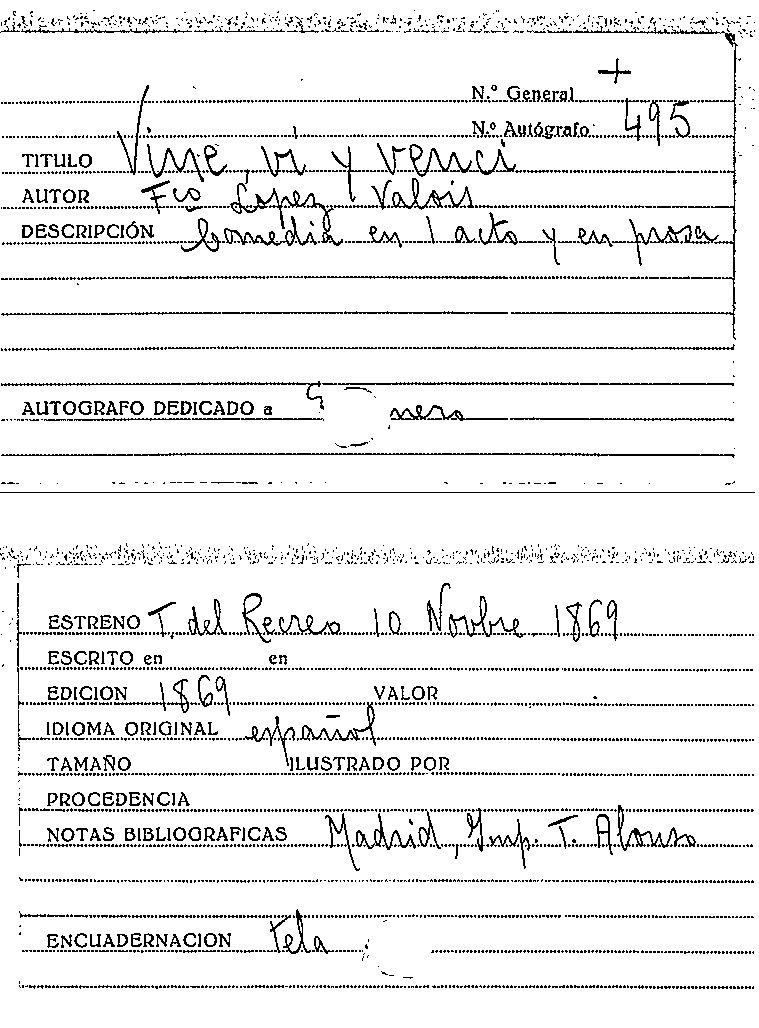 N.º General +
N.º Autógrafo 495
TITULO Vine, vi y venci
AUTOR Fco Lopez Valois
DESCRIPCIÓN Comedia en 1 acto y en prosa
AUTOGRAFO DEDICADO a
ESTRENO T. del Recreo 10 Novbre 1869
ESCRITO en en
EDICION 1869 VALOR
IDIOMA ORIGINAL español
TAMAÑO ILUSTRADO POR
PROCEDENCIA
NOTAS BIBLIOGRAFICAS Madrid, Imp. T. Alonso
ENCUADERNACION tela